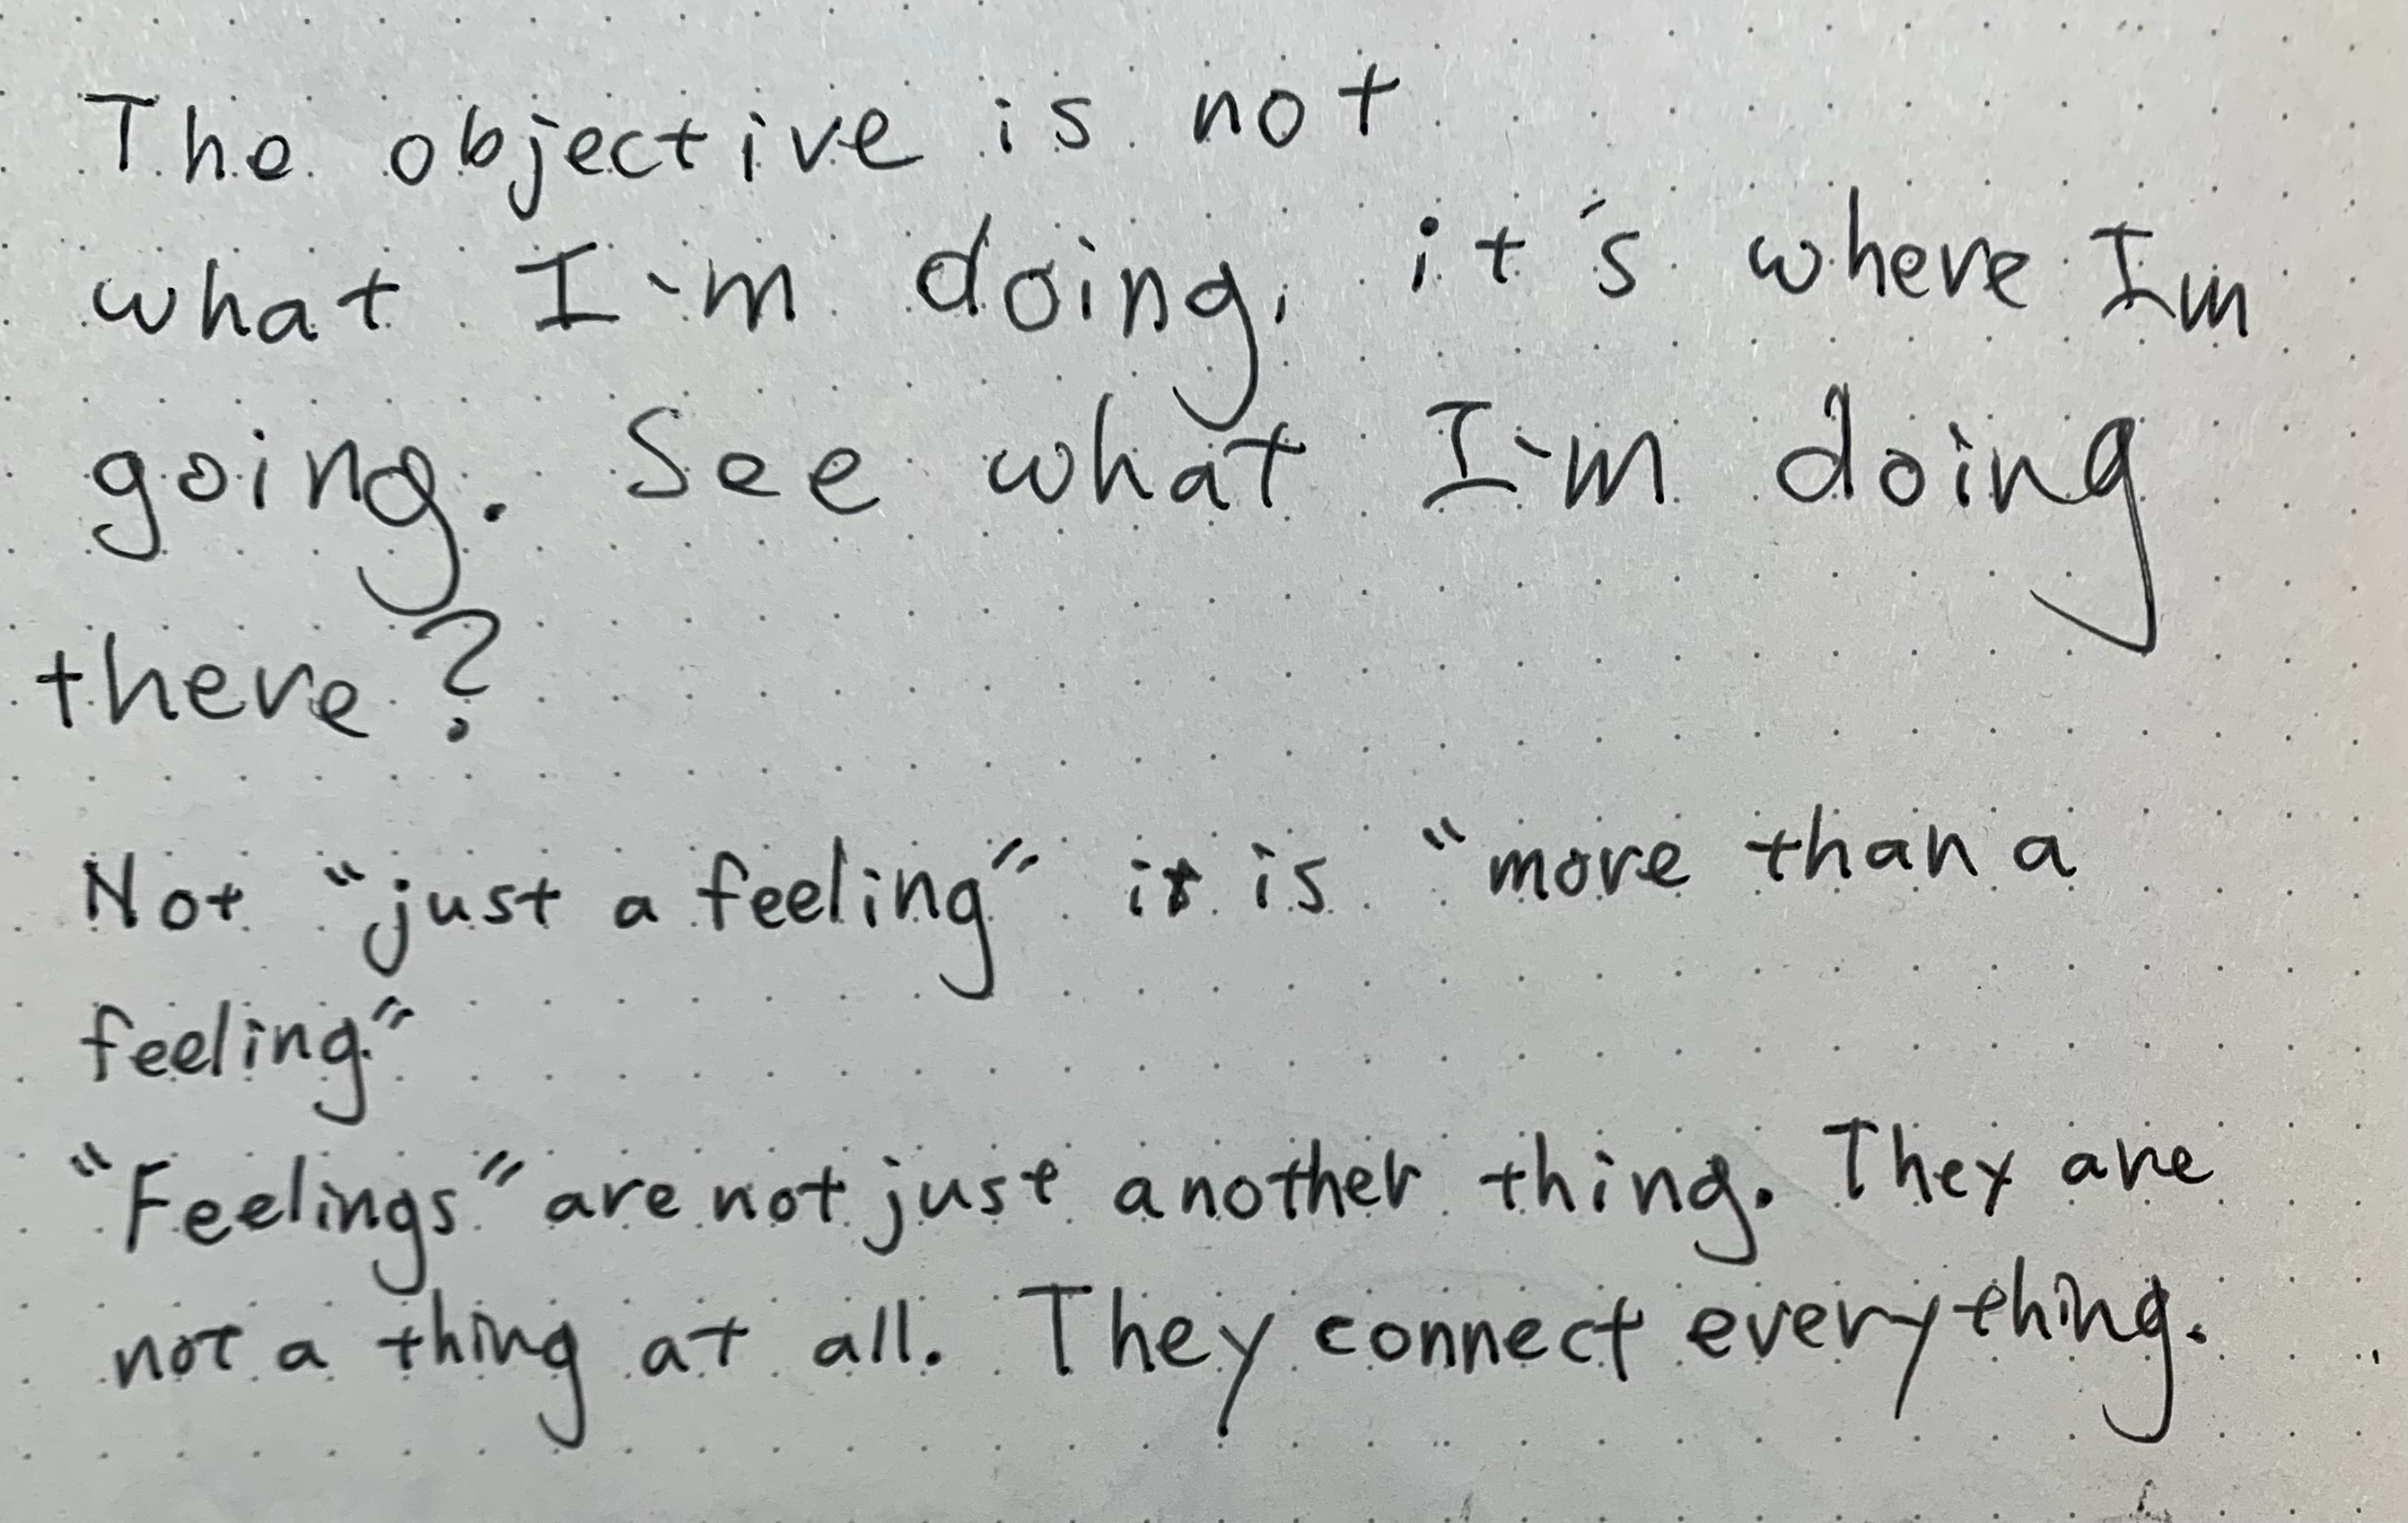 The objective is not
what I'm doing, it's where Im
going. See what I'm doing
there?
Not "just a feeling" it is "more than a
feeling."
"Feelings" are not just another thing. They are
not a thing at all. They connect everything.